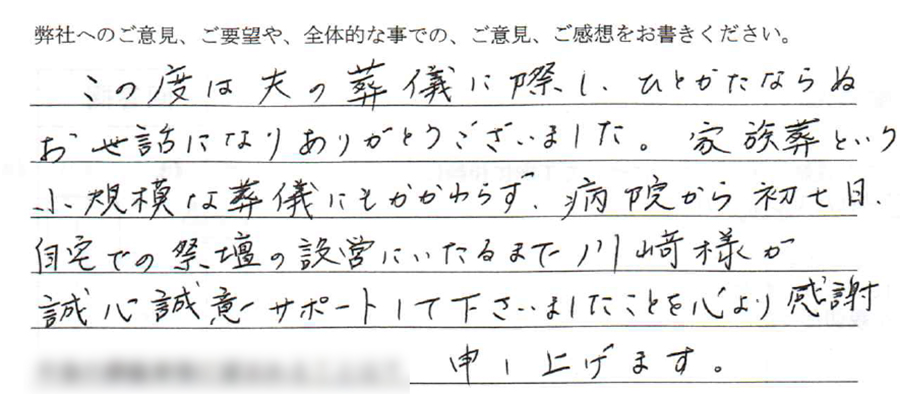 弊社へのご意見、ご要望や、全体的な事での、ご意見、ご感想をお書きください。
この度は夫の葬儀に際し、ひとかたならぬ
お世話になりありがとうございました。家族葬という
小規模な葬儀にもかかわらず、病院から初七日、
自宅での祭壇の設営にいたるまで川崎様が
誠心誠意サポートして下さいましたことを心より感謝
申し上げます。